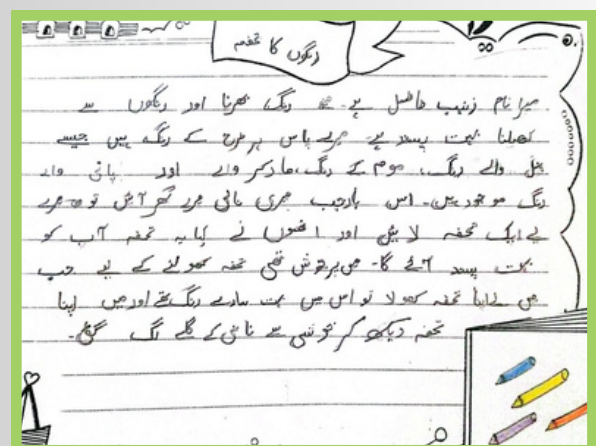 رنگوں کا تحفہ
میرا نام زینب فاضل ہے۔ مجھے رنگ بھرنا اور رنگوں سے
کھیلنا بہت پسند ہے۔ میرے پاس ہر طرح کے رنگ ہیں جیسے
پنسل والے رنگ، موم کے رنگ، مارکر والے اور پانی والے
رنگ موجود ہیں۔ اس بار جب میری نانی میرے گھر آئیں تو وہ میرے
لیے ایک تحفہ لائیں اور انھوں نے کہا یہ تحفہ آپ کو
بہت پسند آئے گا۔ میں پرجوش تھی تحفہ کھولنے کے لیے جب
میں نے اپنا تحفہ کھولا تو اس میں بہت سارے رنگ تھے اور میں اپنا
تحفہ دیکھ کر خوشی سے نانی کے گلے لگ گئی۔